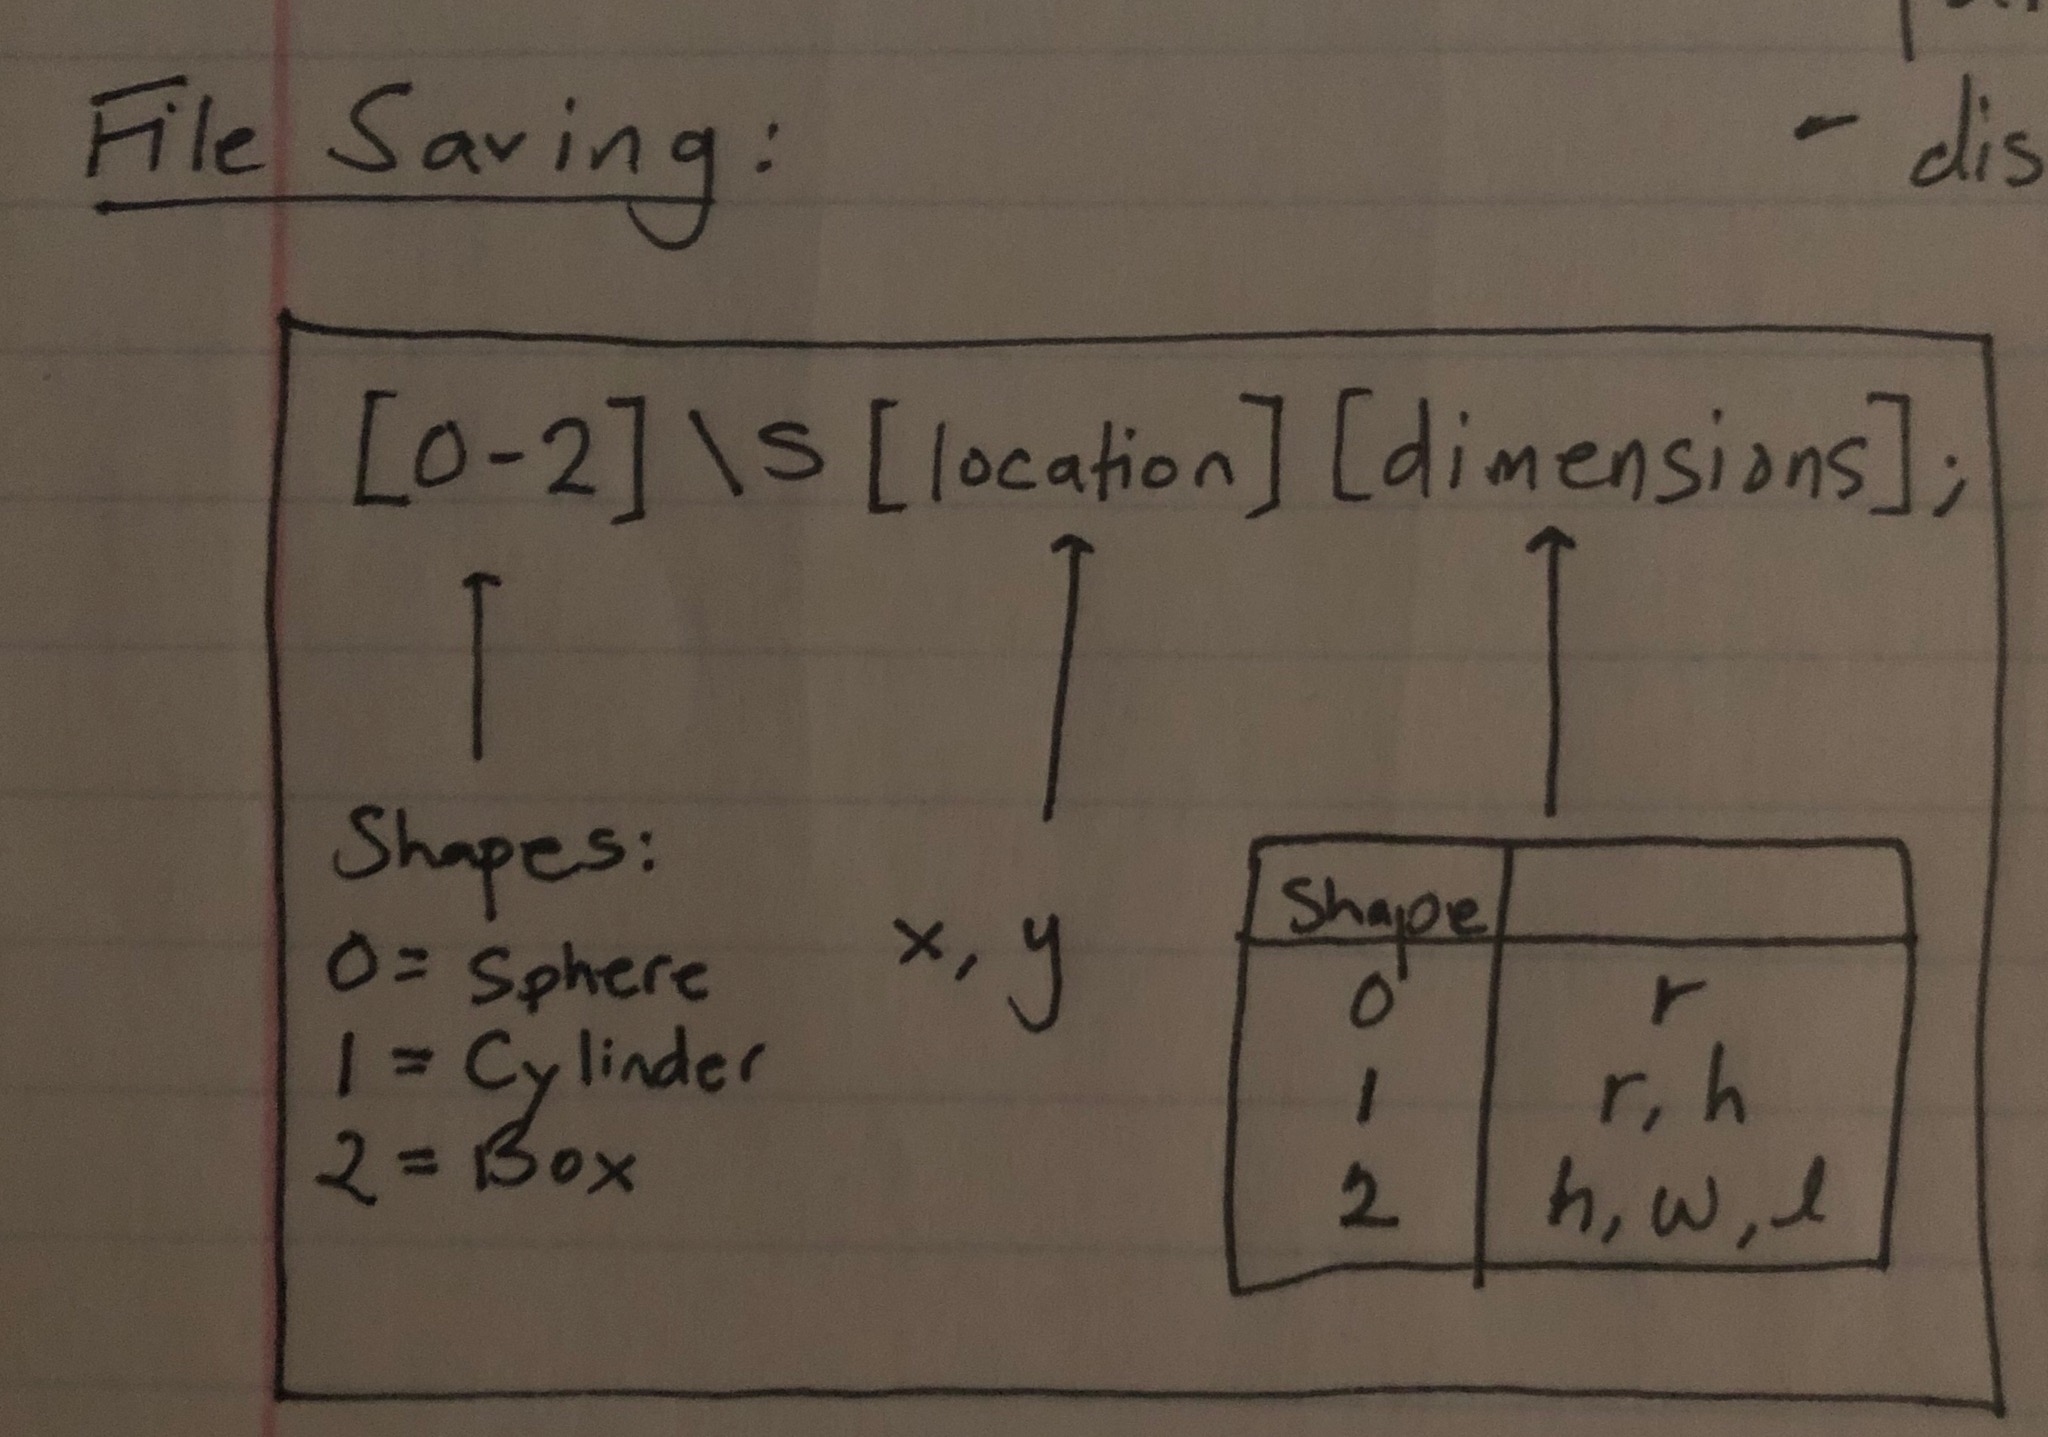 File Saving:
- dis
[0-2]\s[location][dimensions];
Shapes:
0= Sphere
1 = Cylinder
2 = Box
x, y
Shape
0 r
1 r, h
2 h, w, l